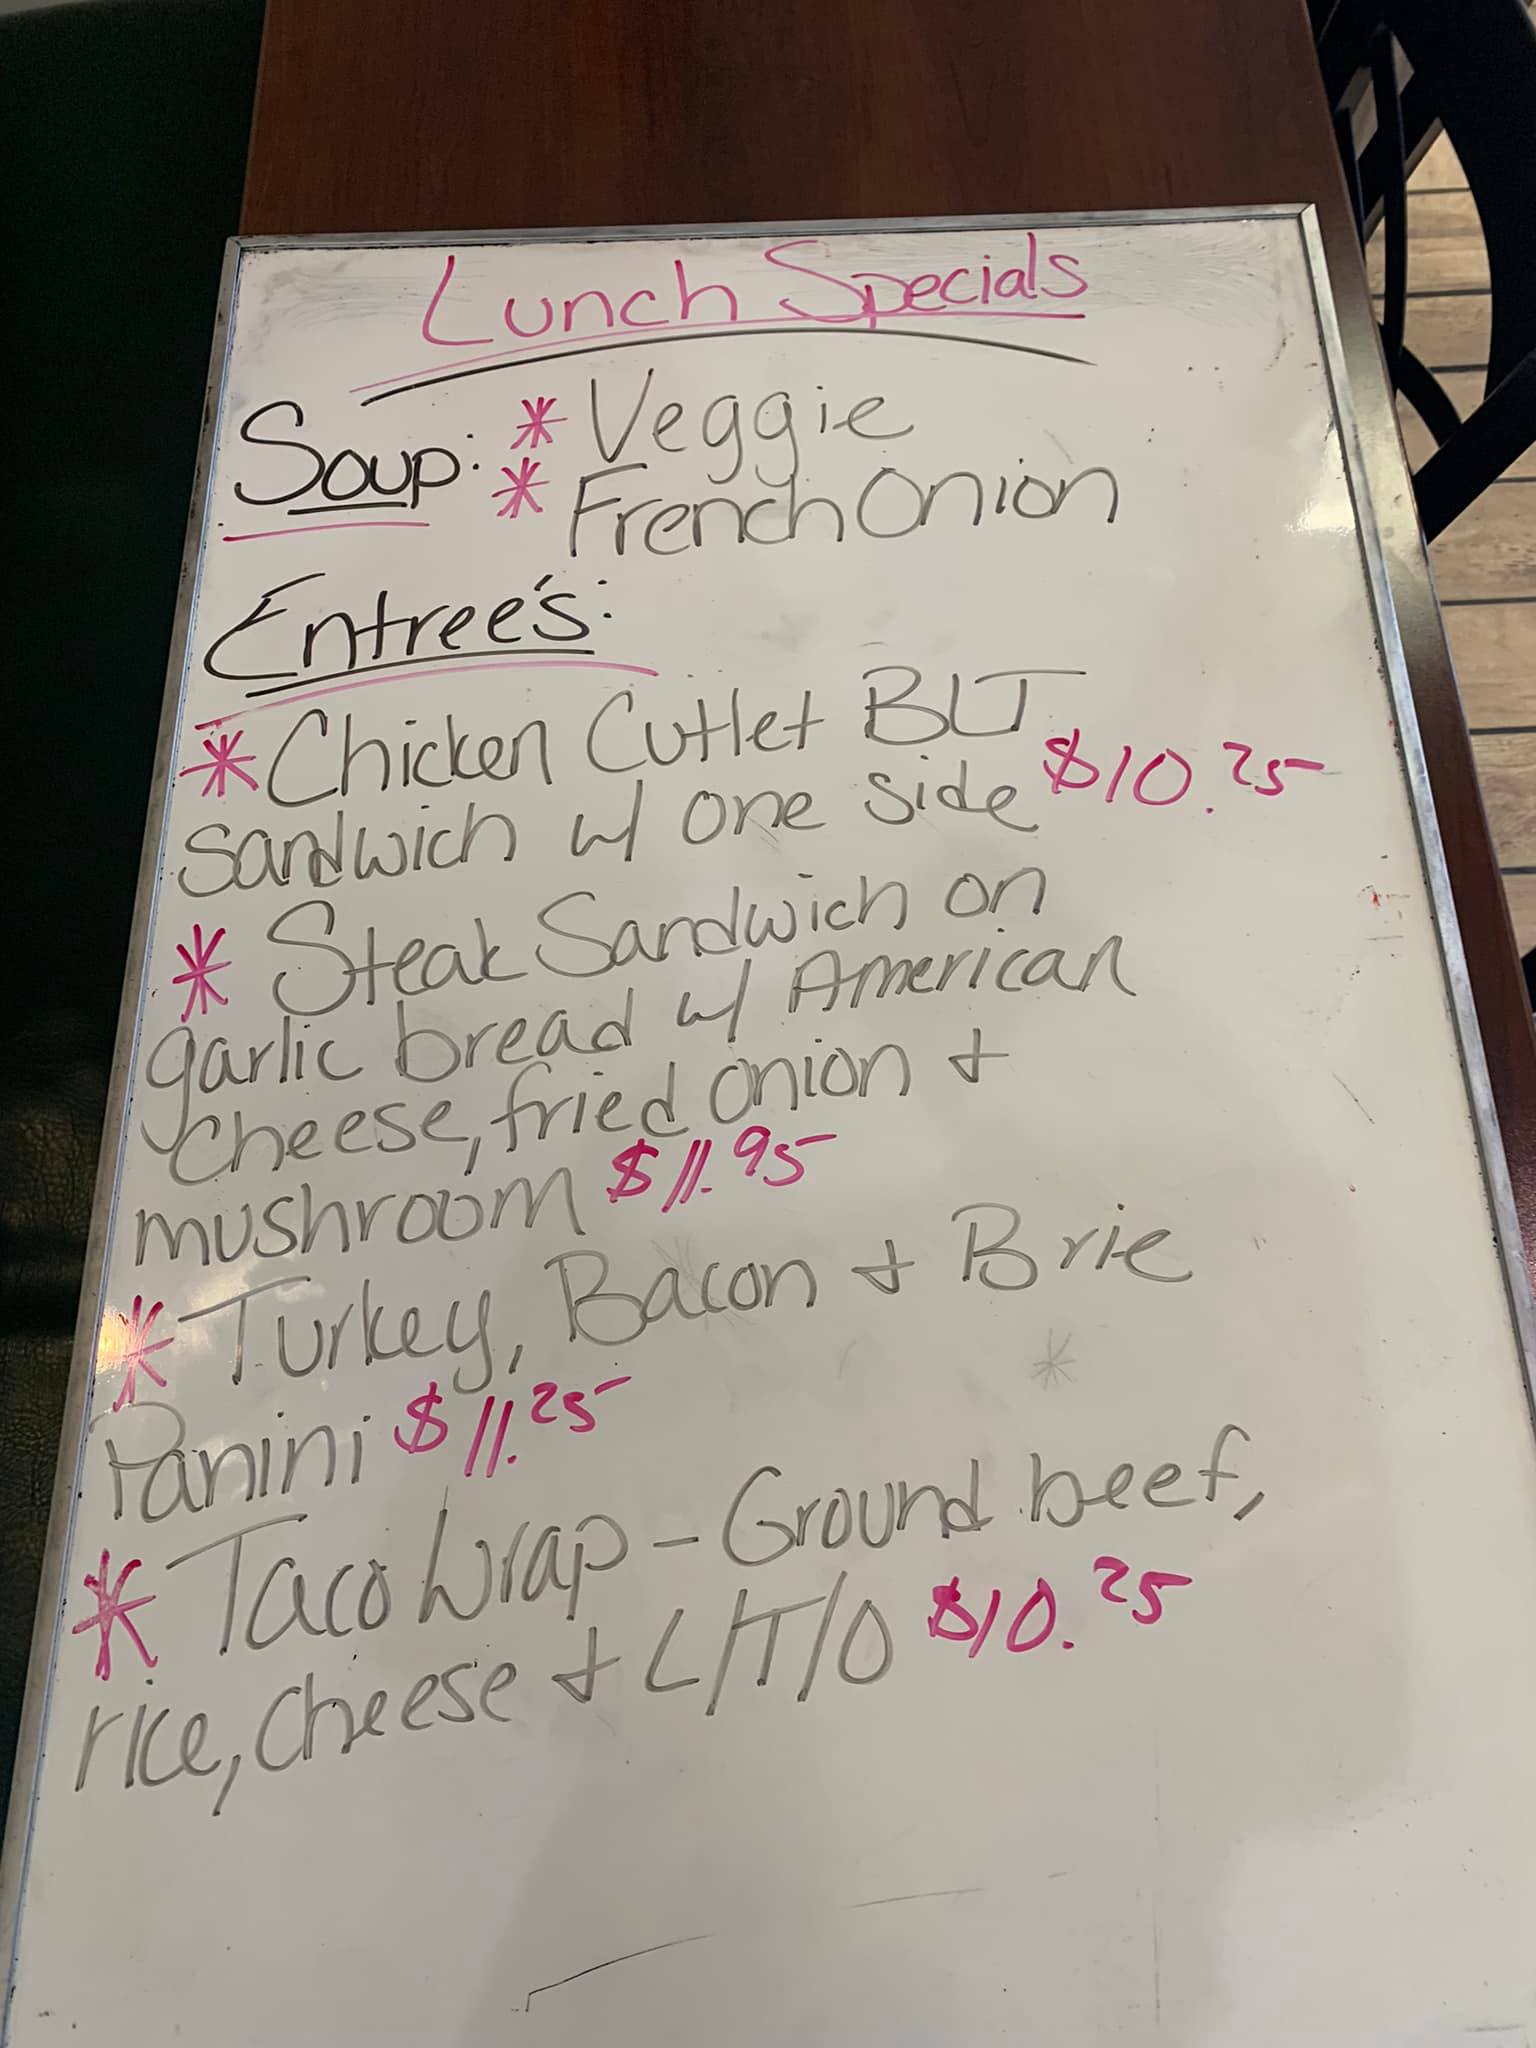 Lunch Specials
Soup: * Veggie
* French Onion
Entree's:
* Chicken Cutlet BLT
sandwich w/ one side $10.25
* Steak Sandwich on
garlic bread w/ American
cheese, fried onion +
mushroom $11.95
* Turkey, Bacon + Brie
Panini $11.25
* Taco Wrap - Ground beef,
rice, cheese + L/T/O $10.25